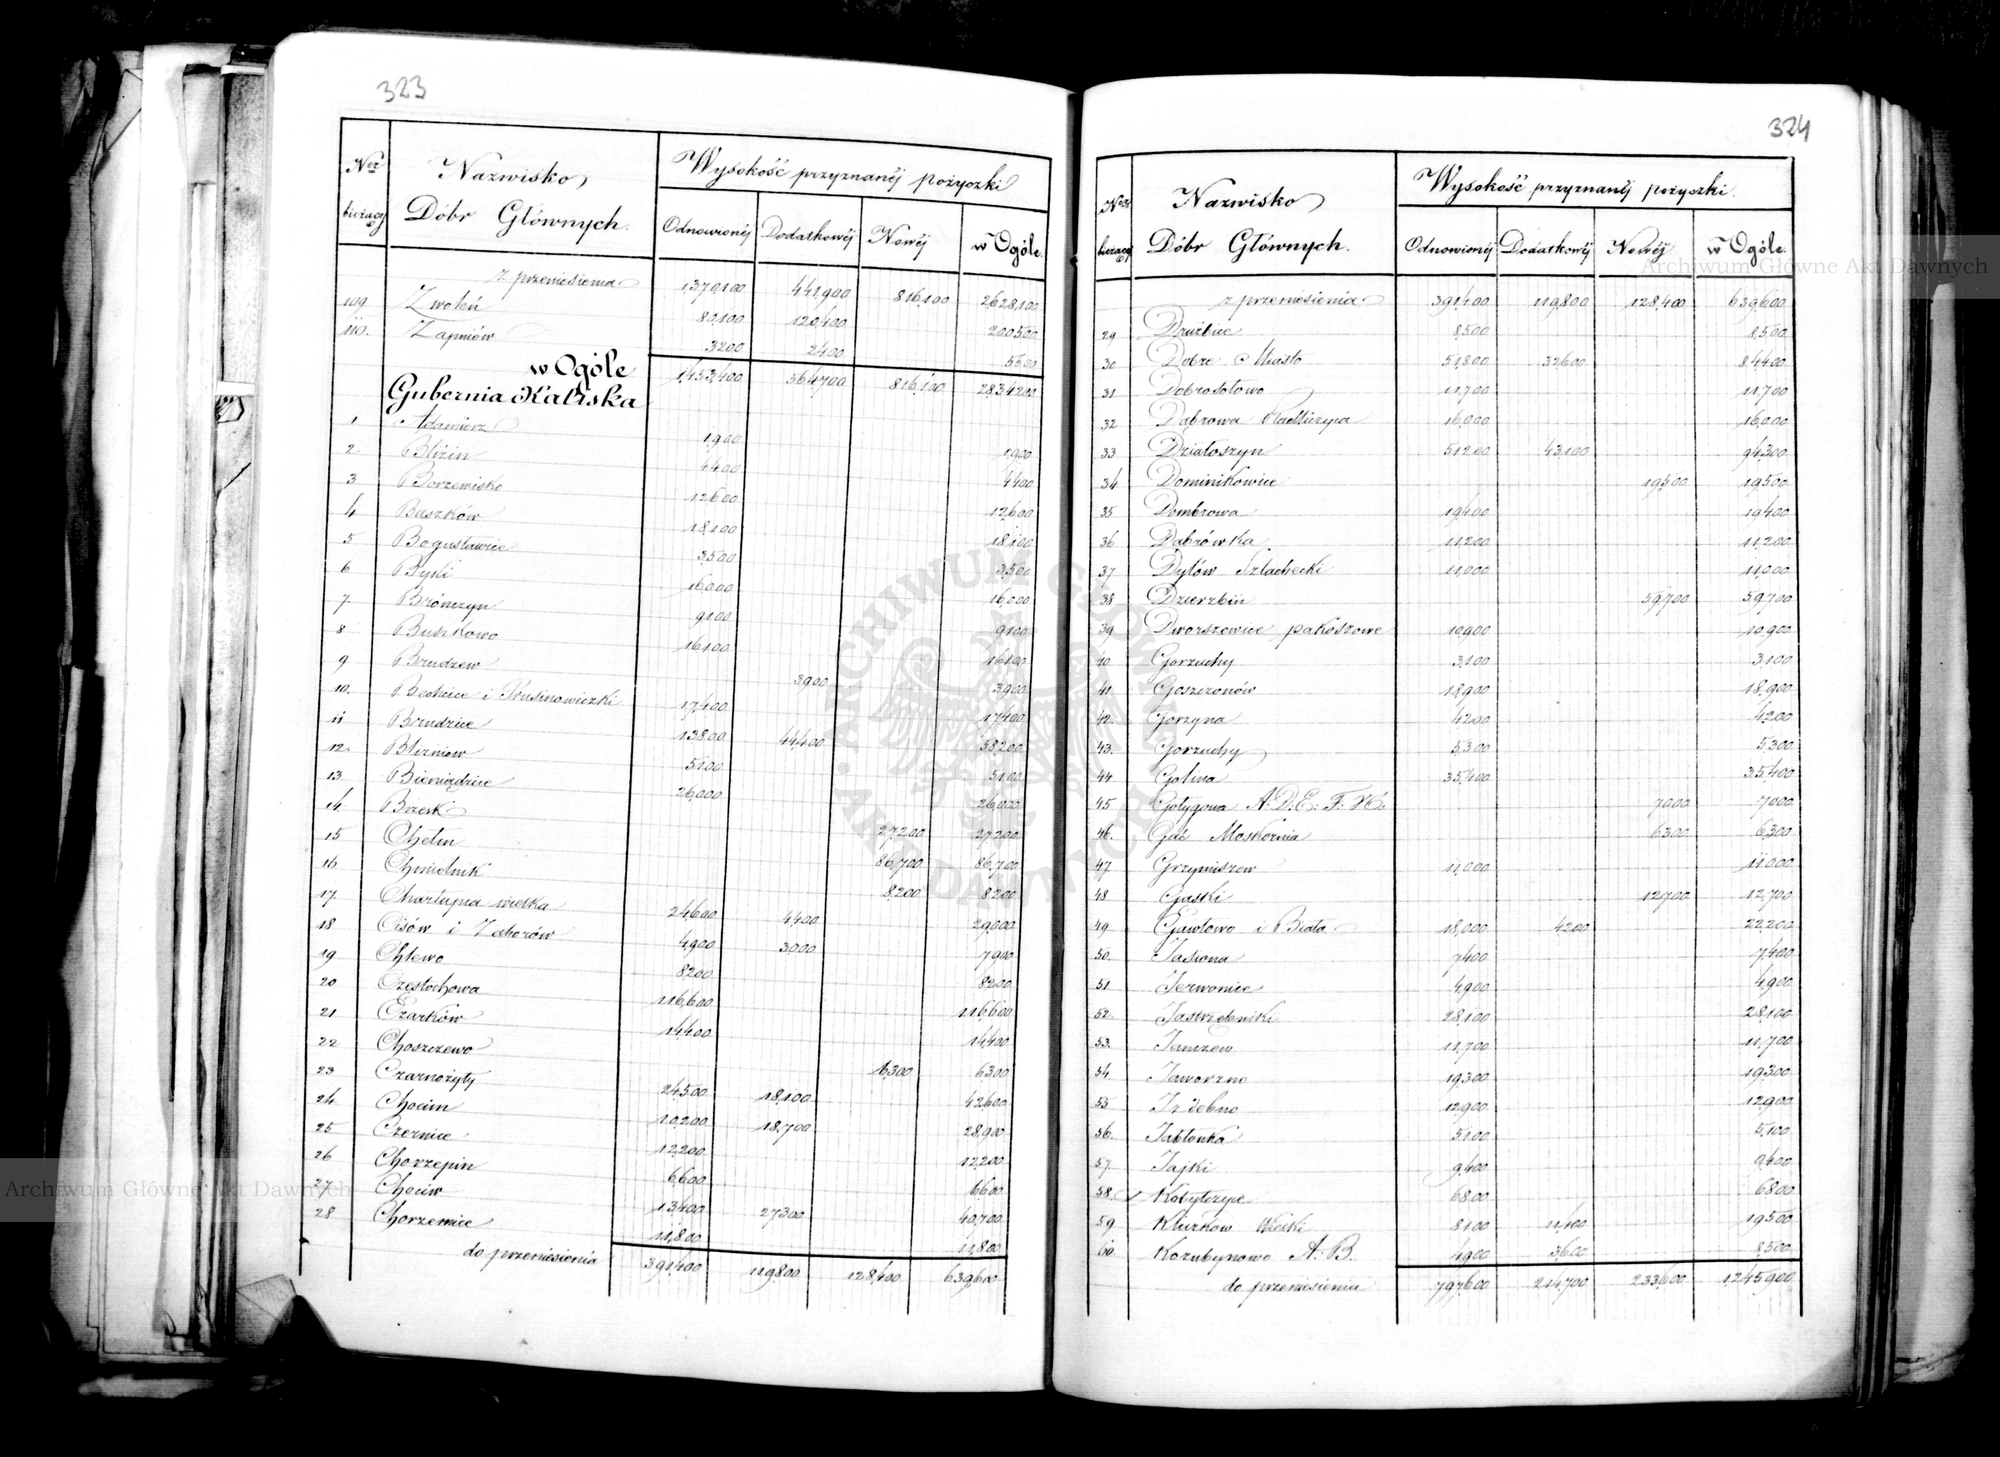 323
Nr bieżący Nazwisko Dóbr Głównych. Wysokość przyznanéj pożyczki
Odnowionéj Dodatkowéj Nowéj w Ogóle.
z przeniesienia 1,370,100 441,900 816,100 2,628,100
109. Zwoleń 80,100 120,400 200,500
110. Zapniów 3200 2400 5600
w Ogóle 1,453,400 564,700 816,100 2,834,200
Gubernia Kaliska
1 Adamierz 1,900 1,900
2. Bliżin 4400 4400
3 Borzewisko 12,600 12,600
4 Baszków 18,100 18,100
5 Bogusławice 3,500 3,500
6 Byki 16,000 16,000
7. Brończyn 9,100 9,100
8 Buszkowo 16,100 16,100
9 Brudzew 3,900 3,900
10. Bechcice i Prusinowiczki 17,400 17,400
11 Brudzice 13,800 44,400 58,200
12. Blizniew 5,100 5,100
13 Bieniądzice 26,000 26,000
14. Brzeski 27,200 27,200
15 Chełm 86,700 86,700
16 Chmielnik 8,200 8,200
17. Charłupia wielka 24,600 4,400 29,000
18 Cisów i Zaborów 4,900 3,000 7,900
19 Chlewo 8,200 8,200
20 Częstochowa 116,600 116,600
21 Czarków 14,400 14,400
22 Choszczewo 6,300 6,300
23 Czarnożyły 24,500 18,100 42,600
24 Chocim 10,200 18,700 28,900
25 Czernice 12,200 12,200
26 Chorzepin 6,600 6,600
27 Chociw 13,400 27,300 40,700
28 Chorzenice 11,800 11,800
do przeniesienia 391,400 119,800 128,400 639,600
324
Nr bieżący Nazwisko Dóbr Głównych. Wysokość przyznanéj pożyczki.
Odnowionéj Dodatkowéj Nowéj w Ogóle.
z przeniesienia 391,400 119,800 128,400 639,600
29. Drużbice 8,500 8,500
30 Dobre Miasto 51,800 32,600 84,400
31 Dobrosołowo 11,700 11,700
32 Dąbrowa 16,000 16,000
33 Działoszyn 51,200 43,100 94,300
34. Dominikowice 19,500 19,500
35 Dombrowa 19,400 19,400
36 Dąbrówka 11,200 11,200
37 Dylów Szlachecki 11,000 11,000
38 Dzierzbin 59,700 59,700
39 Dworszowice pakoszowe 10,900 10,900
40 Gorzuchy 3,100 3,100
41. Goszczonów 18,900 18,900
42. Gorzyna 4,200 4,200
43. Gorzuchy 5,300 5,300
44 Golina 35,400 35,400
45 Gołygowa A. D. E. F. H. 7,000 7,000
46. Gać Moskornia 6,300 6,300
47. Grzymiszew 11,000 11,000
48. Gąski 12,700 12,700
49. Gawłowo i Biała 18,000 4,200 22,200
50. Jasiona 7,400 7,400
51. Jerwonice 4,900 4,900
52. Jastrzębniki 28,100 28,100
53. Janczew 11,700 11,700
54. Jaworzno 19,300 19,300
55. 12,900 12,900
56. Jabłonka 5,100 5,100
57. Jajki 9,400 9,400
58. Kobylczyce 6,800 6,800
59. Klużkow Wielki 8,100 11,400 19,500
60. Kozubynowo A. B. 4,900 3,600 8,500
do przeniesienia 797,600 214,700 233,600 1,245,900
Archiwum Główne Akt Dawnych
Archiwum Główne Akt Dawnych
ARCHIWUM GŁÓWNE AKT DAWNYCH